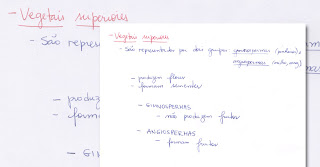 - Vegetais superiores
- São represen
- produz
- forma
- GI
- Vegetais superiores
- São representados por dois grupos: gimnospermas (pinheiro) e
angiospermas
- produzem flores
- formam sementes
- GIMNOSPERMAS
- não produzem frutos
- ANGIOSPERMAS
- formam frutos